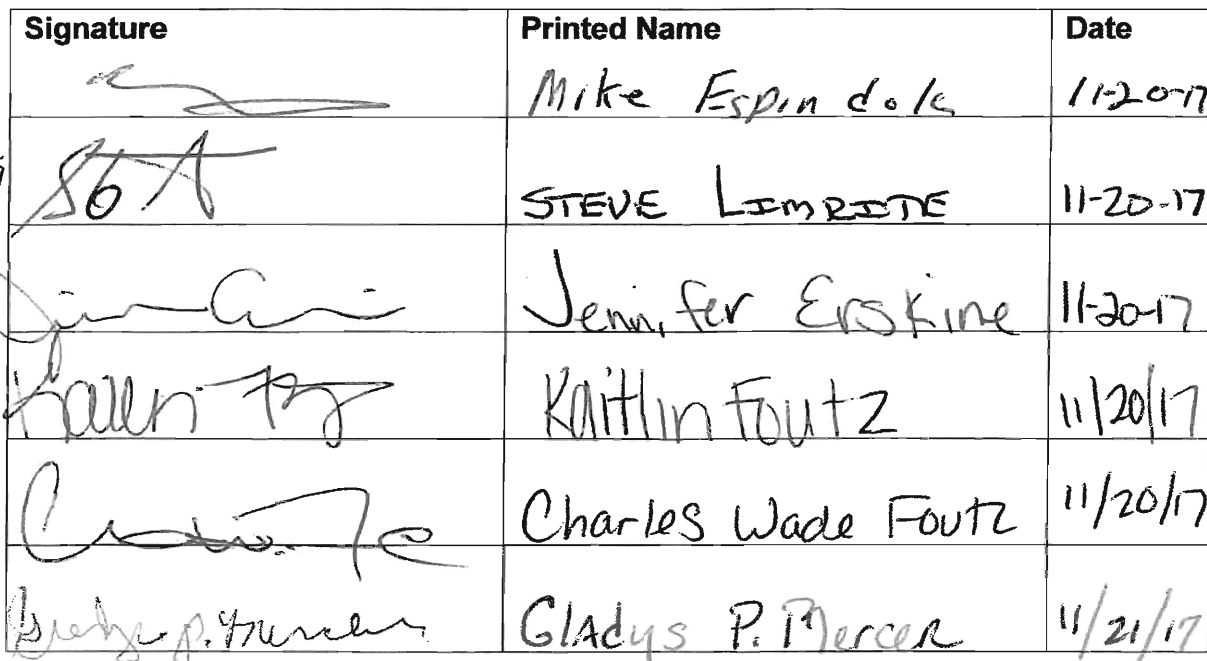 Signature Printed Name Date
Mike Espindola 11-20-17
STEVE LIMRITE 11-20-17
Jennifer Erskine 11-20-17
Kaitlin Foutz 11/20/17
Charles Wade Foutz 11/20/17
Gladys P. Mercer Gladys P. Mercer 11/21/17